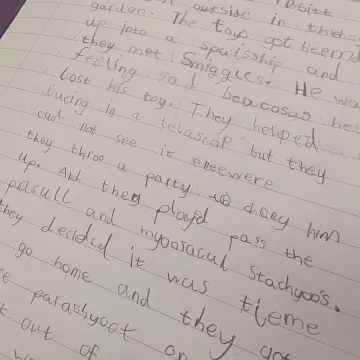 rabitt
outside in there
garden. The toys got beemd
up into a spaisship and
they met Smiggles. He wa
feeling sad beacosas he
lost his toy. They helped
lucing in a telascap but they
cud not see it eneewere
they throo a party to chey him
up. And they playd pass the
parsull and myoosacul Stachyoo's.
they desided it was tieme
go home and they go
parashyoot on
out of